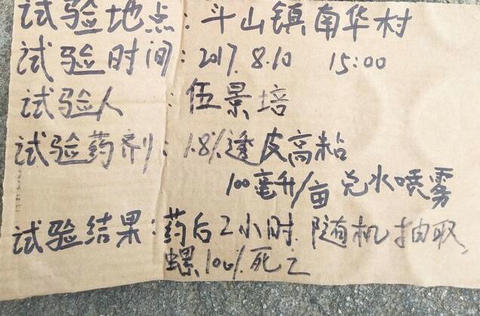 试验地点:斗山镇南华村
试验时间:2017.8.10 15:00
试验人:伍景培
试验药剂:1.8%透皮高粘
100毫升/亩兑水喷雾
试验结果:药后2小时随机抽取
螺100%死亡